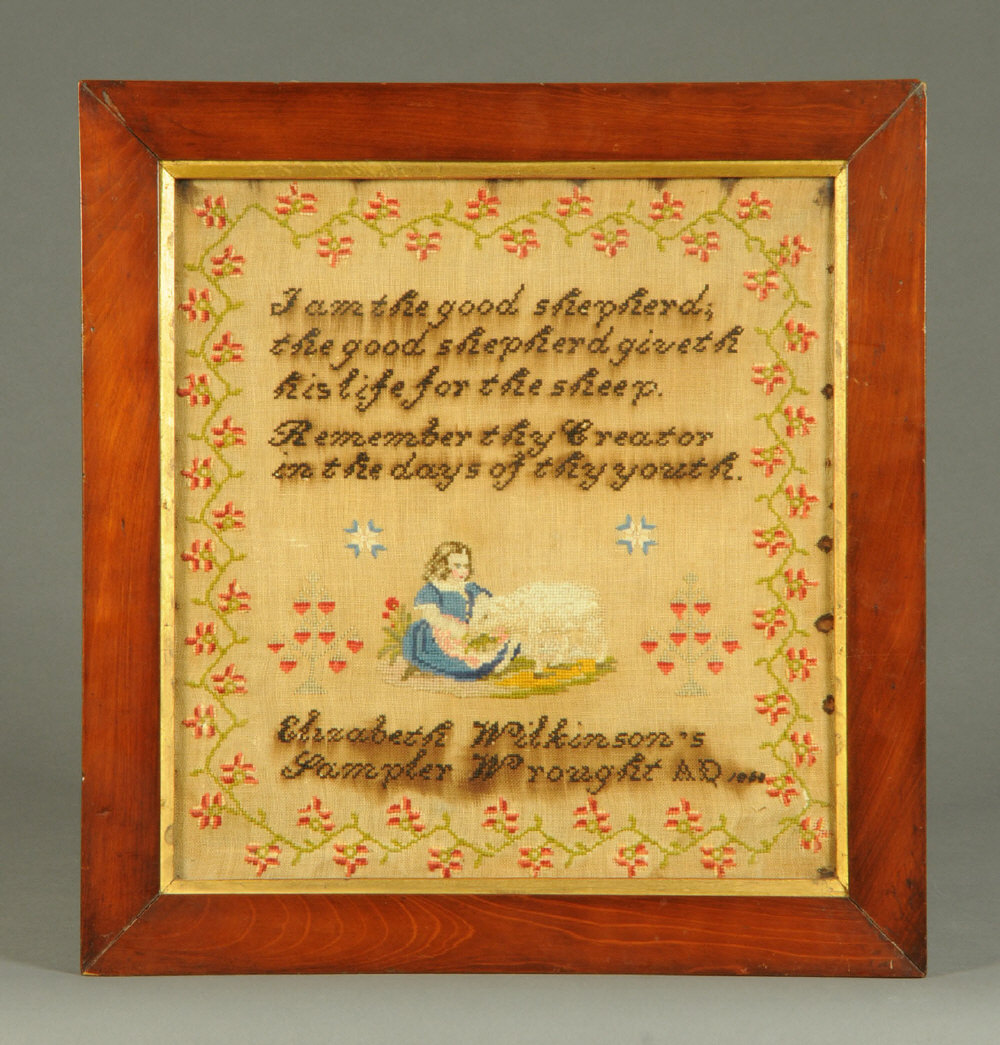 I am the good shepherd;
the good shepherd giveth
his life for the sheep.
Remember thy Creator
in the days of thy youth.
Elizabeth Wilkinson's
Sampler Wrought AD